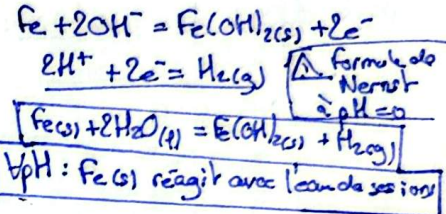 Fe + 2OH⁻ = Fe(OH)₂(s) + 2e⁻
2H⁺ + 2e⁻ = H₂(g)
⚠ formule de
Nernst
à pH = 0
Fe(s) + 2H₂O(l) = E(OH)₂(s) + H₂(g)
∀pH : Fe(s) réagit avec l'eau da ses ions